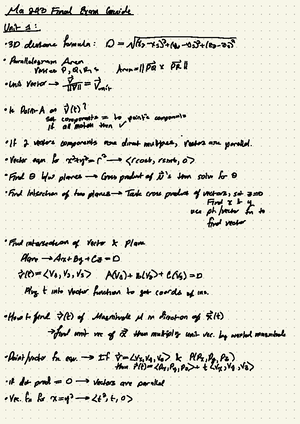 Ma 240 Final Exam Guide
Unit 1:
• 3D distance formula: D = √(x₂-x₁)²+(y₂-y₁)²+(z₂-z₁)²
• Parallelogram Area
Vertices P, Q, R, S Area = ||PQ × PR||
• Unit vector → v/||v|| = v unit
• Is Point A on r(t)?
Set components = to point's components
if all match then ✓
• If 2 vectors components are direct multiples, vectors are parallel.
• Vector eqn for x²+y²=r² → <rcost, rsint, 0>
• Find θ b/w planes → Cross product of n's then solve for θ
• Find Intersection of two planes → Take cross product of vectors, set z=0
Find x & y
use pt/vector fn to
find vector
• Find intersection of vector & plane
Plane → Ax+By+Cz=D
r(t) = <V₁, V₂, V₃> A(V₁)+B(V₂)+C(V₃)=D
Plug t into vector function to get coords of int.
• How to find v(t) of Magnitude M in direction of r(t)
→ find unit vec of r then multiply unit vec. by wanted magnitude
• Point/vector fn eqn. → If v=<Vx, Vy, Vz> & P(Px, Py, Pz)
then r(t) = <Px, Py, Pz> + t<Vx, Vy, Vz>
• if dot prod = 0 → vectors are parallel
• Vec. fn for x=y² → <t², t, 0>